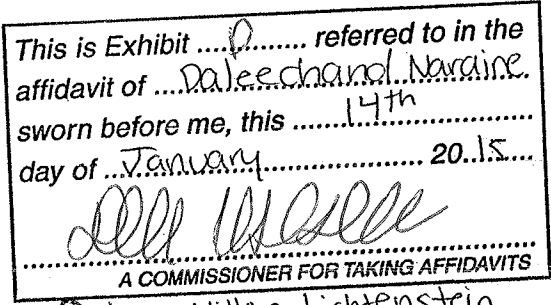 This is Exhibit ....D........ referred to in the
affidavit of ....Daleechand Naraine.
sworn before me, this ....14th....
day of ..January.................... 2015....
A COMMISSIONER FOR TAKING AFFIDAVITS
Lichtenstein